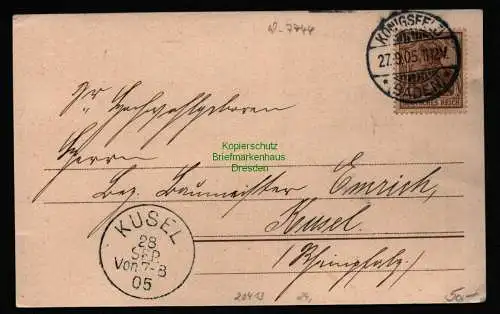 W-7744
KÖNIGSFELD
27.9.05.11-12V
(BADEN)
DEUTSCHES REICH
Sr Hochwohlgeboren
Kopierschutz
Briefmarkenhaus
Dresden
Herrn
Bez. Baumeister Emrich,
Kusel.
(Rheinpfalz)
KUSEL
28
SEP
Vor. 7-8
05
20413
50,-